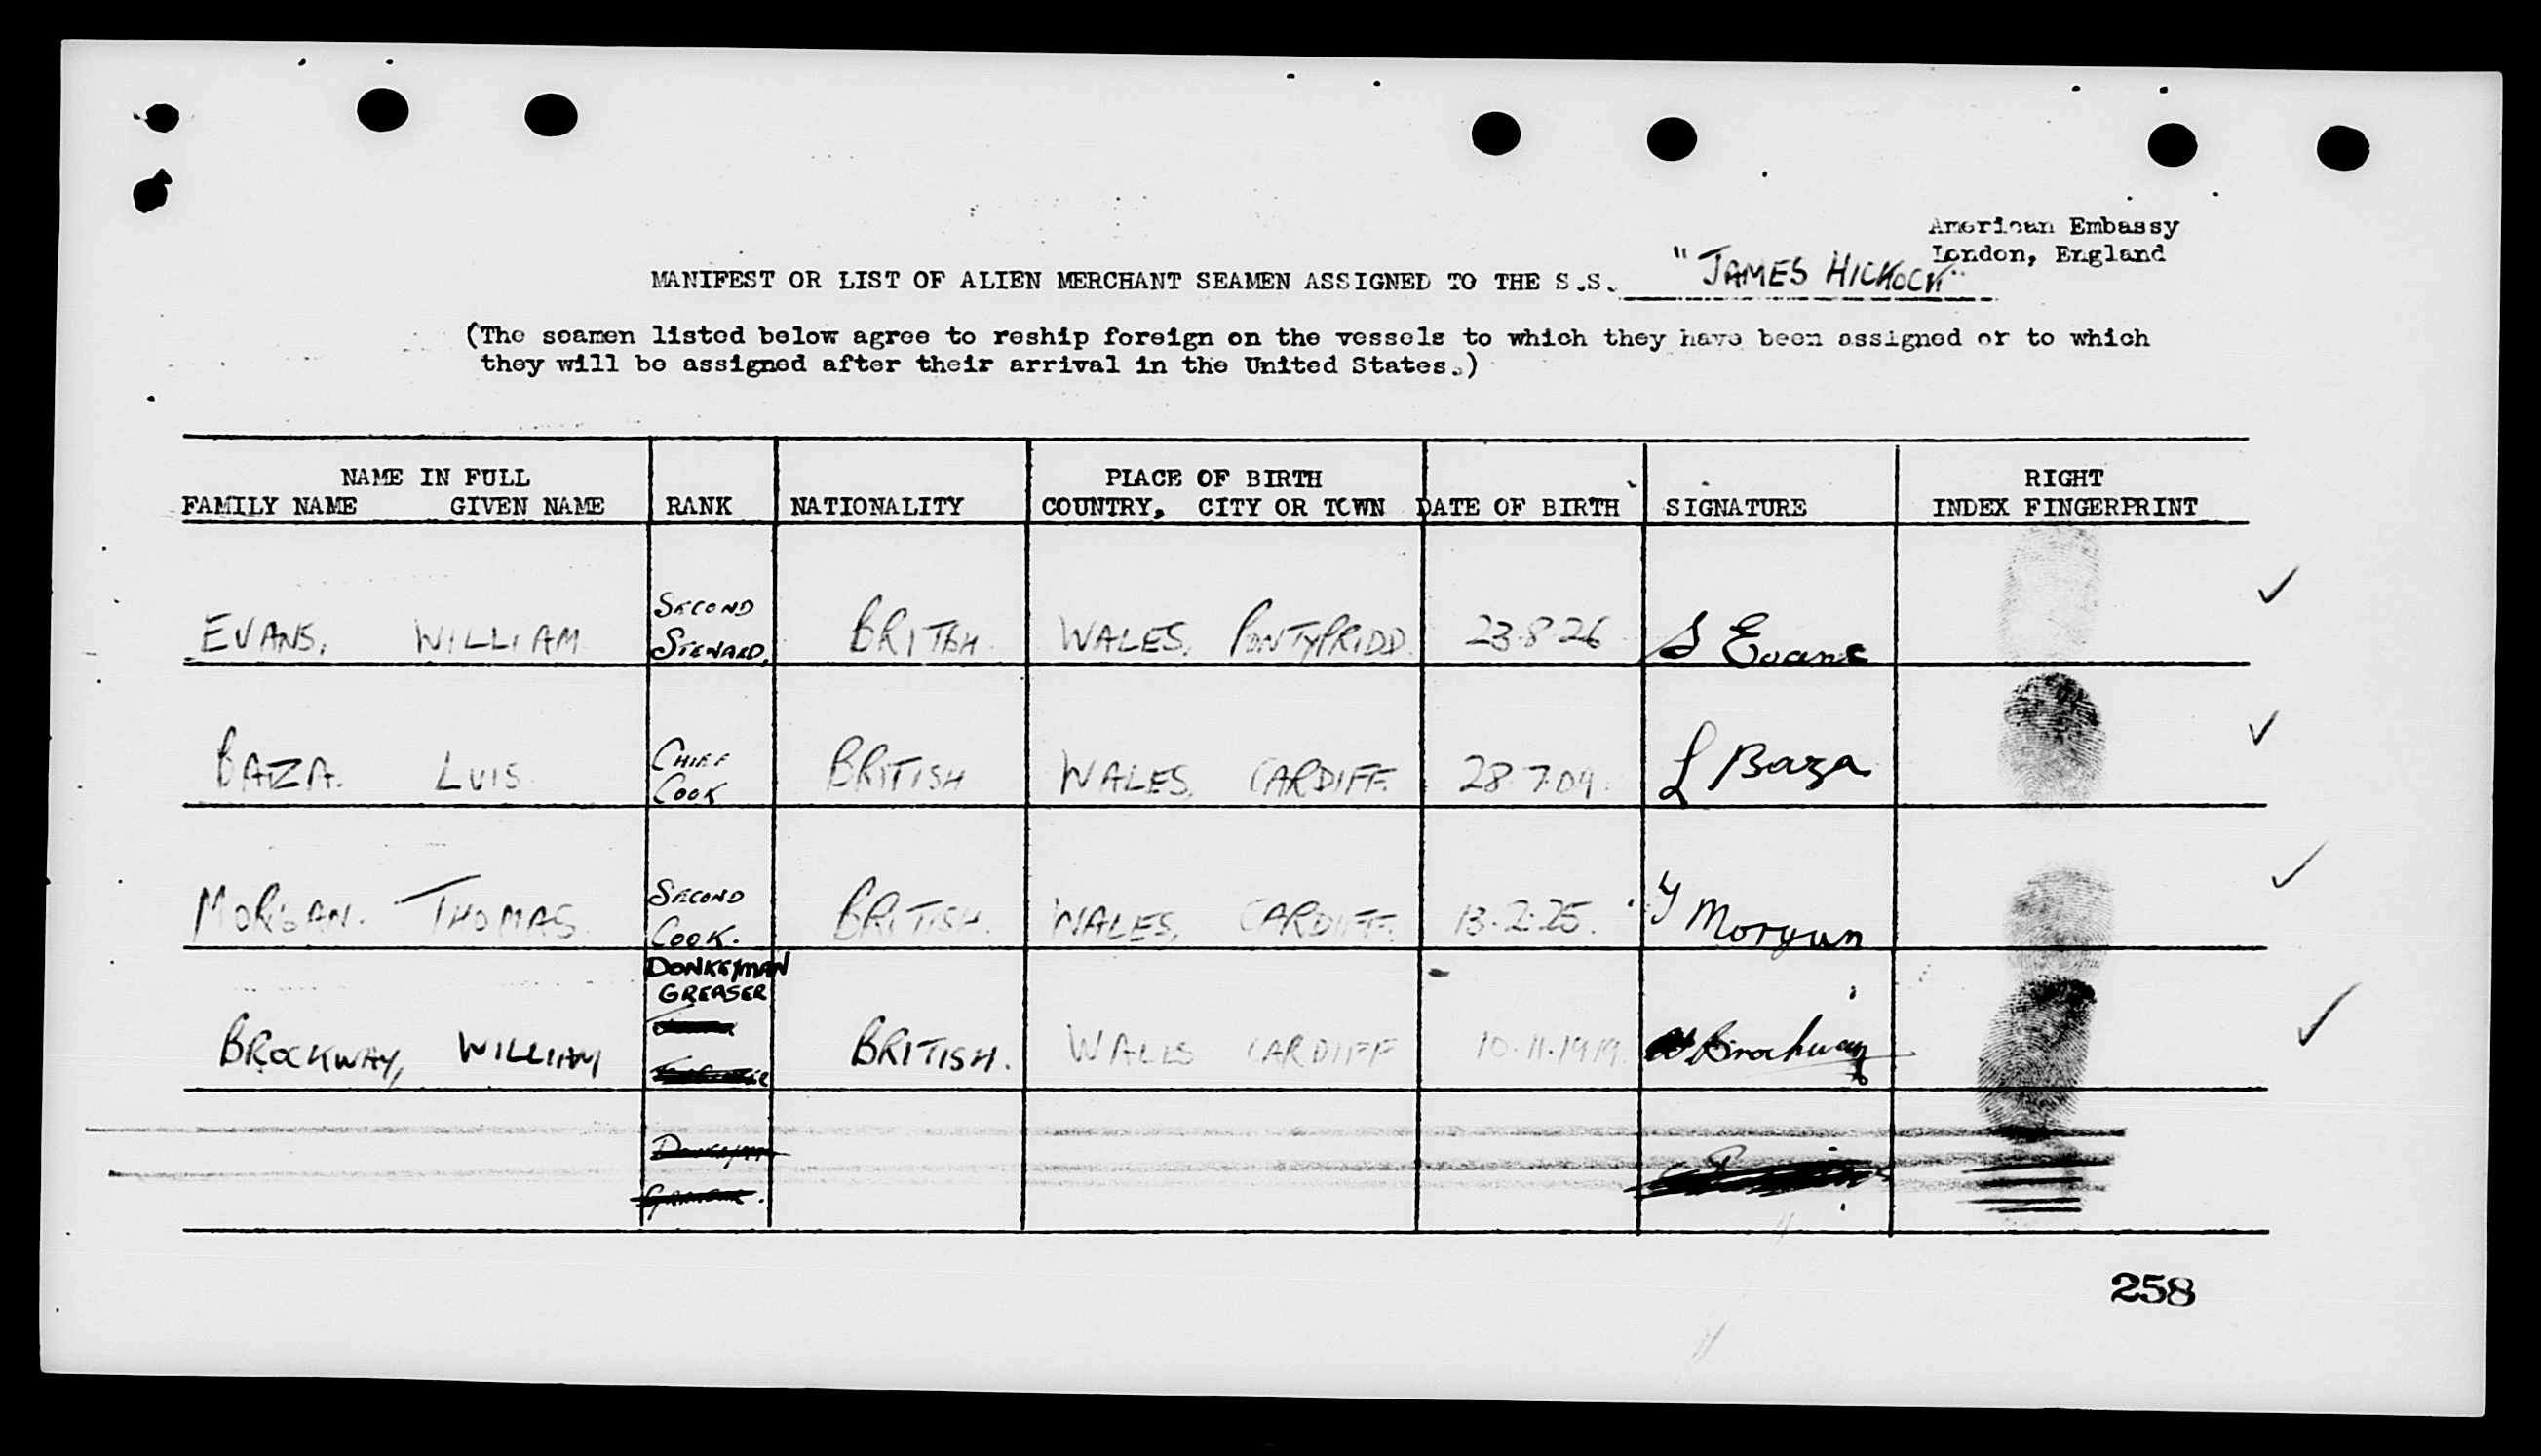 American Embassy
London, England
MANIFEST OR LIST OF ALIEN MERCHANT SEAMEN ASSIGNED TO THE S.S. "JAMES HICKOCK"
(The seamen listed below agree to reship foreign on the vessels to which they have been assigned or to which
they will be assigned after their arrival in the United States.)
NAME IN FULL PLACE OF BIRTH RIGHT
FAMILY NAME GIVEN NAME RANK NATIONALITY COUNTRY, CITY OR TOWN DATE OF BIRTH SIGNATURE INDEX FINGERPRINT
SECOND
EVANS, WILLIAM STEWARD. BRITISH. WALES. PONTYPRIDD. 23.8.26 S Evans
CHIEF
BAZA. LUIS COOK BRITISH WALES. CARDIFF. 28.7.09. L Baza
SECOND
MORGAN. THOMAS. COOK. BRITISH. WALES, CARDIFF. 13.2.25. T Morgan
DONKEYMAN
GREASER
BROCKWAY, WILLIAM BRITISH. WALES CARDIFF 10.11.1919. W Brockway
DONKEYMAN
GREASER.
258